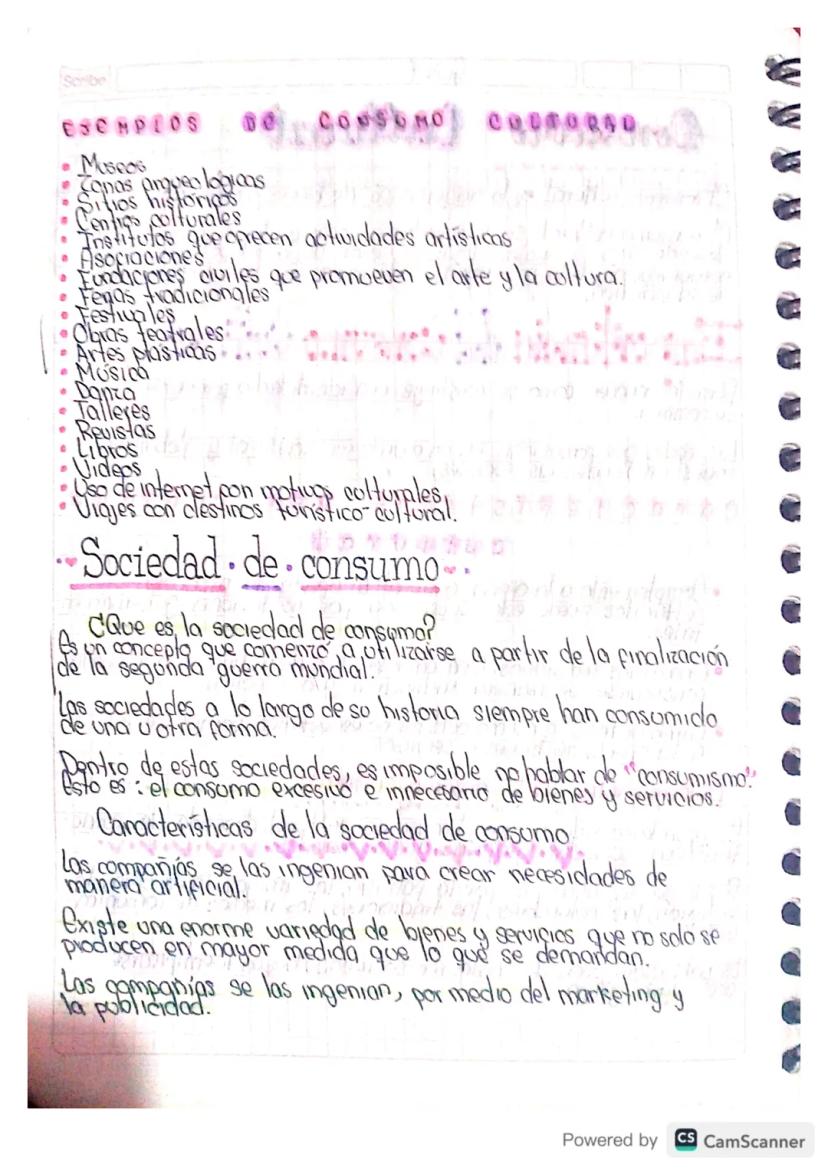 Scribe
EJEMPLOS DE CONSUMO CULTURAL
• Museos
• Zonas arqueologicas
• Sitios históricos
• Centros culturales
• Institutos que ofrecen actividades artísticas
• Asociaciones
• Fundaciones civiles que promueven el arte y la cultura.
• Ferias tradicionales
• Festivales
• Obras teatrales
• Artes plásticas
• Música
• Danza
• Talleres
• Revistas
• Libros
• Videos
• Uso de internet con motivos culturales
• Viajes con destinos turístico-cultural.
Sociedad de consumo
¿Que es la sociedad de consumo?
Es un concepto que comenzó a utilizarse a partir de la finalización
de la segunda guerra mundial.
Las sociedades a lo largo de su historia siempre han consumido
de una u otra forma.
Dentro de estas sociedades, es imposible no hablar de "consumismo".
Esto es: el consumo excesivo e innecesario de bienes y servicios.
Características de la sociedad de consumo
Las compañías se las ingenian para crear necesidades de
manera artificial.
Existe una enorme variedad de bienes y servicios que no solo se
producen en mayor medida que lo que se demandan.
Las compañías se las ingenian, por medio del marketing y
la publicidad.
Powered by CS CamScanner